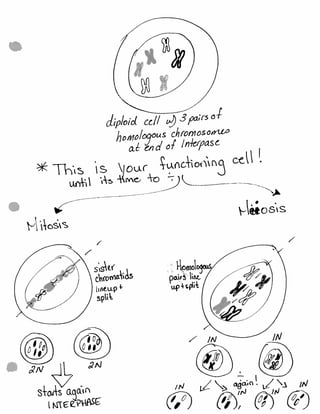 diploid cell w/ 3 pairs of
homologous chromosomes
at end of Interpase
* This is your functioning cell!
until its time to ÷
Mitosis
Meiosis
sister
chromatids
line up +
split
Homologous
pairs line
up + split
2N
2N
Starts again
INTERPHASE
1N
1N
÷
again!
1N
1N
1N
1N